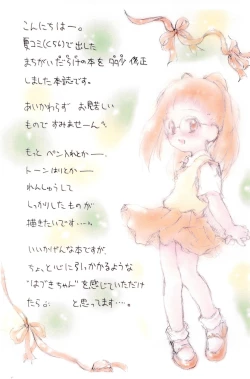 こんにちはー。
夏コミ(C51)で出した
まちがいだらけの本を 修正
しました本誌です。
あいかわらず お難しい
もので すみませーん。
もっと ペン入れとかー、
トーンはりとかー
れんしゅうして
しっかりしたものが
描きたいです……。
いいかげんな本ですが、
ちょっと心に引っかかるような
"はづきちゃん"を感じていただけ
たらぶ と思ってます…。